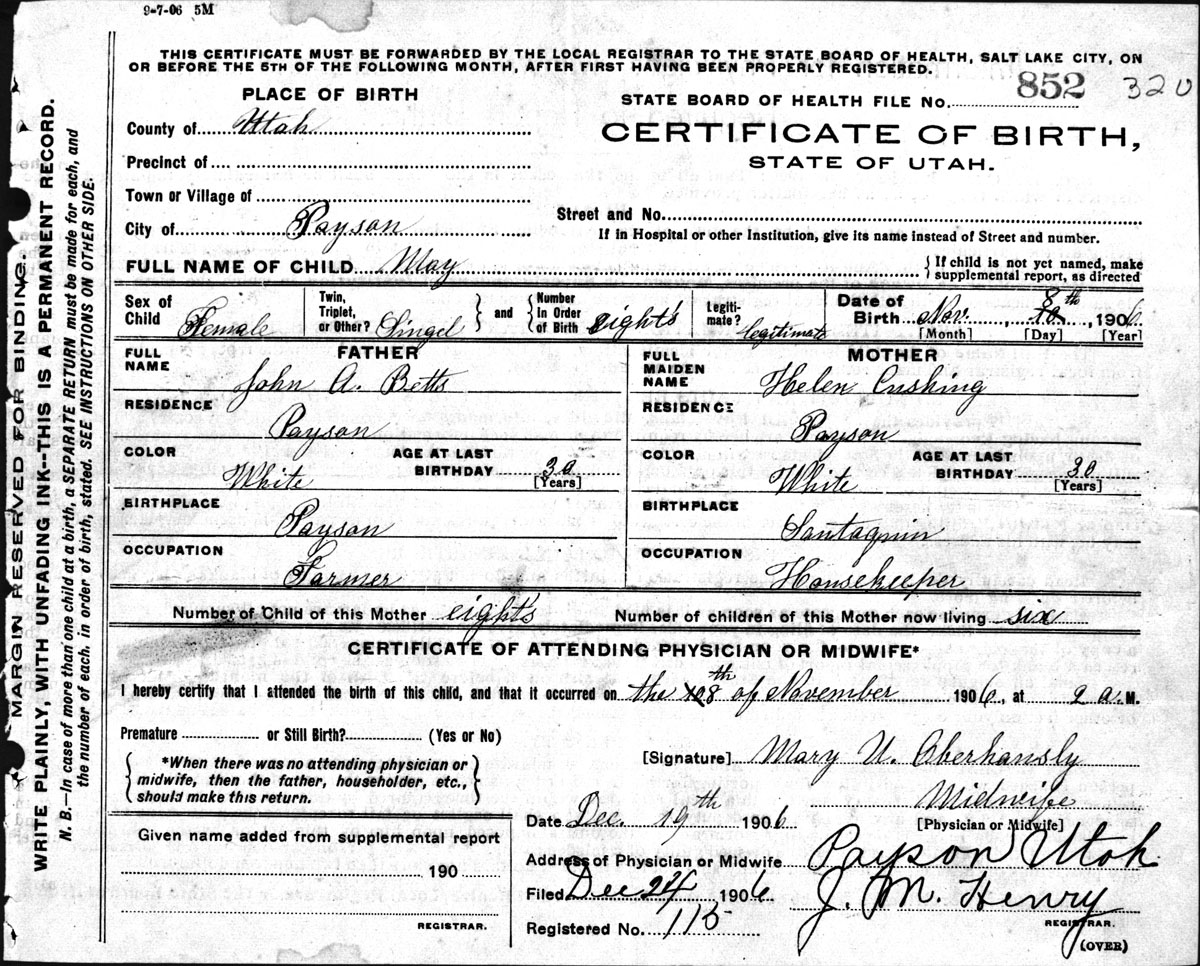 9-7-06 5M
THIS CERTIFICATE MUST BE FORWARDED BY THE LOCAL REGISTRAR TO THE STATE BOARD OF HEALTH, SALT LAKE CITY, ON
OR BEFORE THE 5TH OF THE FOLLOWING MONTH, AFTER FIRST HAVING BEEN PROPERLY REGISTERED.
PLACE OF BIRTH
STATE BOARD OF HEALTH FILE No. 852 320
County of Utah
CERTIFICATE OF BIRTH,
STATE OF UTAH.
Precinct of
Town or Village of
Street and No.
City of Payson
If in Hospital or other Institution, give its name instead of Street and number.
FULL NAME OF CHILD May
{ If child is not yet named, make
supplemental report, as directed
Sex of Child Female
Twin, Triplet, or Other? Singel
and
Number In Order of Birth eights
Legiti-mate? legitimate
Date of Birth Nov. 8th, 1906
[Month] [Day] [Year]
FATHER
FULL NAME John A. Betts
RESIDENCE Payson
COLOR White
AGE AT LAST BIRTHDAY
[Years]
BIRTHPLACE Payson
OCCUPATION Farmer
MOTHER
FULL MAIDEN NAME Helen Cushing
RESIDENCE Payson
COLOR White
AGE AT LAST BIRTHDAY 30
[Years]
BIRTHPLACE Santaquin
OCCUPATION Housekeeper
Number of Child of this Mother eights Number of children of this Mother now living six
CERTIFICATE OF ATTENDING PHYSICIAN OR MIDWIFE*
I hereby certify that I attended the birth of this child, and that it occurred on the 8th of November 1906, at 2 a. M.
Premature or Still Birth? (Yes or No)
*When there was no attending physician or
midwife, then the father, householder, etc.,
should make this return.
[Signature] Mary U. Aberhansly
Midwife
[Physician or Midwife]
Date Dec. 19th 1906
Given name added from supplemental report
190
REGISTRAR.
Address of Physician or Midwife Payson Utah
Filed Dec 24 1906 J. M. Henry
REGISTRAR.
Registered No. 115
(OVER)
MARGIN RESERVED FOR BINDING.
WRITE PLAINLY, WITH UNFADING INK--THIS IS A PERMANENT RECORD.
N. B.—In case of more than one child at a birth, a SEPARATE RETURN must be made for each, and
the number of each, in order of birth, stated. SEE INSTRUCTIONS ON OTHER SIDE.